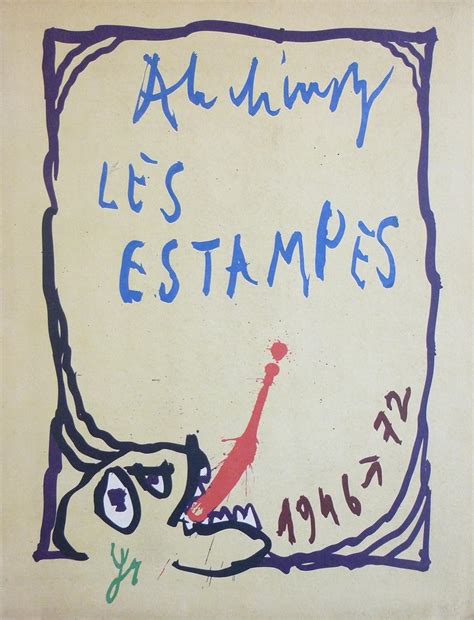 Alechinsky
LÈS
ESTAMPÈS
1946-72
Yr